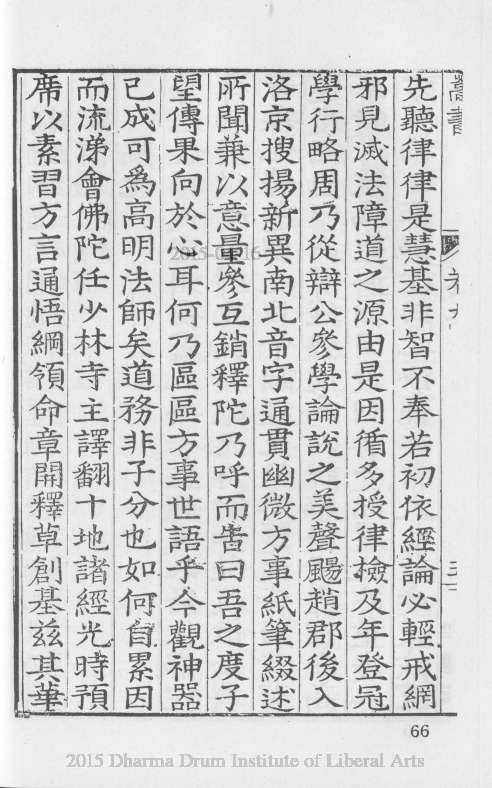 先聽律律是慧基非智不奉若初依經論必輕戒網
邪見滅法障道之源由是因循多授律撿及年登冠
學行略周乃從辯公參學論說之美聲颺趙郡後入
洛京搜揚新異南北音字通貫幽微方事紙筆綴述
所聞兼以意量參互銷釋陀乃呼而告曰吾之度子
望傳果向於心耳何乃區區方事世語乎今觀神器
已成可為高明法師矣道務非子分也如何自累因
而流涕會佛陀任少林寺主譯翻十地諸經光時預
席以素習方言通悟綱領命章開釋草創基茲其華
66
2015 Dharma Drum Institute of Liberal Arts